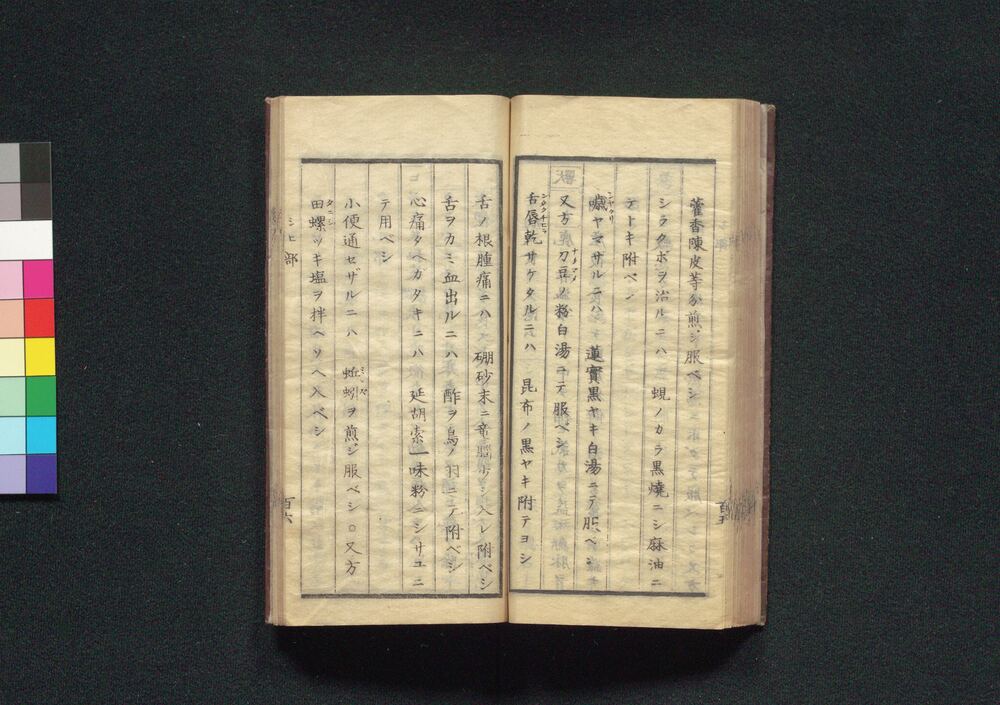 藿香陳皮等分煎ジ服ベシ
シラクボヲ治ルニハ 蜆ノカラ黒燒ニシ麻油ニ
テトキ附ベシ
噦ヤマザルニハ 蓮實黒ヤキ白湯ニテ服ベシ
又方 刀豆ノ粉白湯ニテ服ベシ
舌唇乾サケタルニハ 昆布ノ黒ヤキ附テヨシ
舌ノ根腫痛ニハ 硼砂末ニ竜脳少シ入レ附ベシ
舌ヲカミ血出ルニハ 酢ヲ鳥ノ羽ニテ附ベシ
心痛タヘガタキニハ 延胡索一味粉ニシサユニ
テ用ベシ
小便通セザルニハ 蚯蚓ヲ煎ジ服ベシ○又方
田螺ツキ塩ヲ拌ヘソヘ入ベシ
部
百六